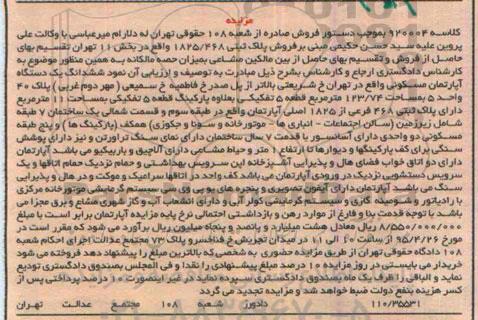 مزایده
کلاسه ۹۲۰۰۰۴ بموجب دستور فروش صادره از شعبه ۱۰۸ حقوقی تهران له دلارام میرعباسی با وکالت علی
پروین علیه سید حسن حکیمی مبنی بر فروش پلاک ثبتی ۱۸۲۵/۴۶۸ واقع در بخش ۱۱ تهران تقسیم بهای
حاصل از فروش و تقسیم بهای حاصل از بین مالکین مشاعی بمیزان حصه مالکانه به همین منظور موضوع به
کارشناس دادگستری ارجاع و کارشناس بشرح ذیل مبادرت به توصیف و ارزیابی آن نمود ششدانگ یک دستگاه
آپارتمان مسکونی واقع در تهران خ شریعتی بالاتر از پل صدر خ فاطمیه خ سمیعی ( مهر دوم غربی ) پلاک ۴۰
واحد ۵ بمساحت ۱۲۳/۰۴ مترمربع قطعه ۵ تفکیکی بعلاوه پارکینگ قطعه ۵ تفکیکی بمساحت ۱۱ مترمربع
دارای پلاک ثبتی ۴۶۸ فرعی از ۱۸۲۵ اصلی آپارتمان واقع در طبقه سوم و قسمت شمالی یک ساختمان ۷ طبقه
شامل زیرزمین (سالن اجتماعات - انباری ها - موتورخانه و سونا و جکوزی) همکف (پارکینگ ها) و پنج طبقه
مسکونی دو واحدی دارای آسانسور با قدمت ۷ سال ساختمان دارای نمای سنگ تراورتن و نیز دارای پوشش
سنگی برای کف پارکینگها و دیوارها تا ارتفاع ۱ متر و حیاط مشاعی دارای آلاچیق و باربیکیو می باشد آپارتمان
دارای دو اتاق خواب فضای هال و پذیرایی آشپزخانه اپن سرویس بهداشتی و حمام نزدیک حمام اتاقها و یک
سرویس دستشویی نزدیک در ورودی آپارتمان می باشد کف واحد در اتاقها سرامیک و موکت و در هال و پذیرایی
سنگ می باشد آپارتمان دارای آیفون تصویری و پنجره های یو پی وی سی سیستم گرمایشی موتورخانه مرکزی
با رادیاتور و شومینه گازی و سیستم گرمایشی کولر آبی و دارای انشعاب آب و گاز شهری مشاع و برق مجزا می
باشد با توجه قدمت بنا و فارغ از موارد رهن و بازداشتی احتمالی نرخ پایه مزایده آپارتمان برابر است با مبلغ
۸/۵۵۰/۰۰۰/۰۰۰ ریال معادل هشت میلیارد و پانصد و پنجاه میلیون ریال برآورد می شود که مقرر است در
مورخ ۹۵/۴/۲۶ از ساعت ۱۰ الی ۱۱ در میدان تجریش خ فناخسرو پلاک ۷۳ مجتمع عدالت اجرای احکام شعبه
۱۰۸ دادگاه حقوقی تهران از طریق مزایده حضوری به شخصی که بالاترین مبلغ را پیشنهاد دهد فروخته می شود
خریدار می بایستی در روز مزایده ۱۰ درصد مبلغ پیشنهادی را نقدا و فی المجلس بصندوق دادگستری تودیع
نماید و الباقی را ظرف یک ماه بصندوق دادگستری سپرده نماید در غیر اینصورت ۱۰ درصد پرداختی پس از
کسر هزینه بنفع دولت ضبط خواهد شد و مزایده تجدید می گردد
۱۱۰/۳۵۵۳۱ دادورز شعبه ۱۰۸ مجتمع عدالت تهران